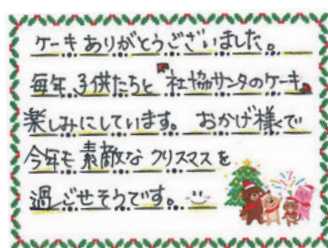 ケーキありがとうございました。
毎年、子供たちと"社協サンタのケーキ"
楽しみにしています。おかげ様で
今年も素敵なクリスマスを
過ごせそうです。